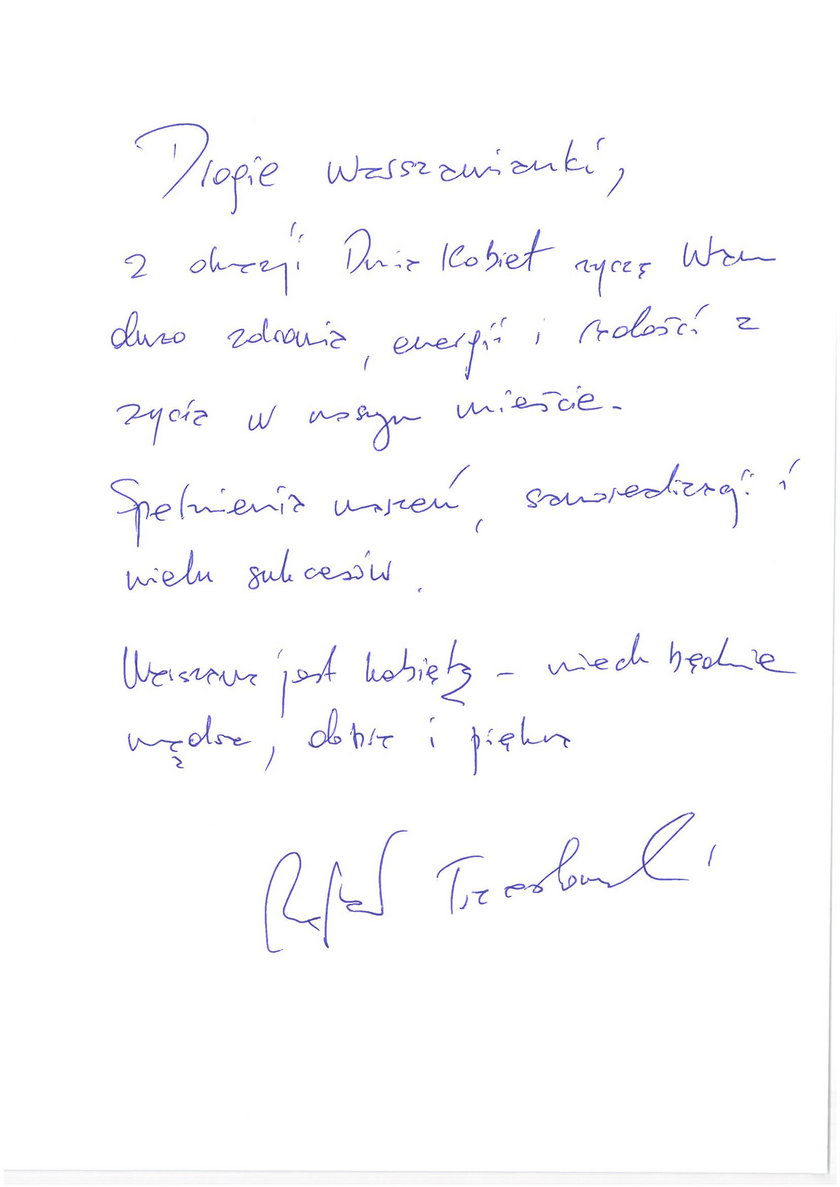 Drogie Warszawianki,
z okazji Dnia Kobiet życzę Wam
dużo zdrowia, energii i radości z
życia w naszym mieście.
Spełnienia marzeń, samorealizacji i
wielu sukcesów.
Warszawa jest kobietą – niech będzie
mądra, dobra i piękna
Rafał Trzaskowski